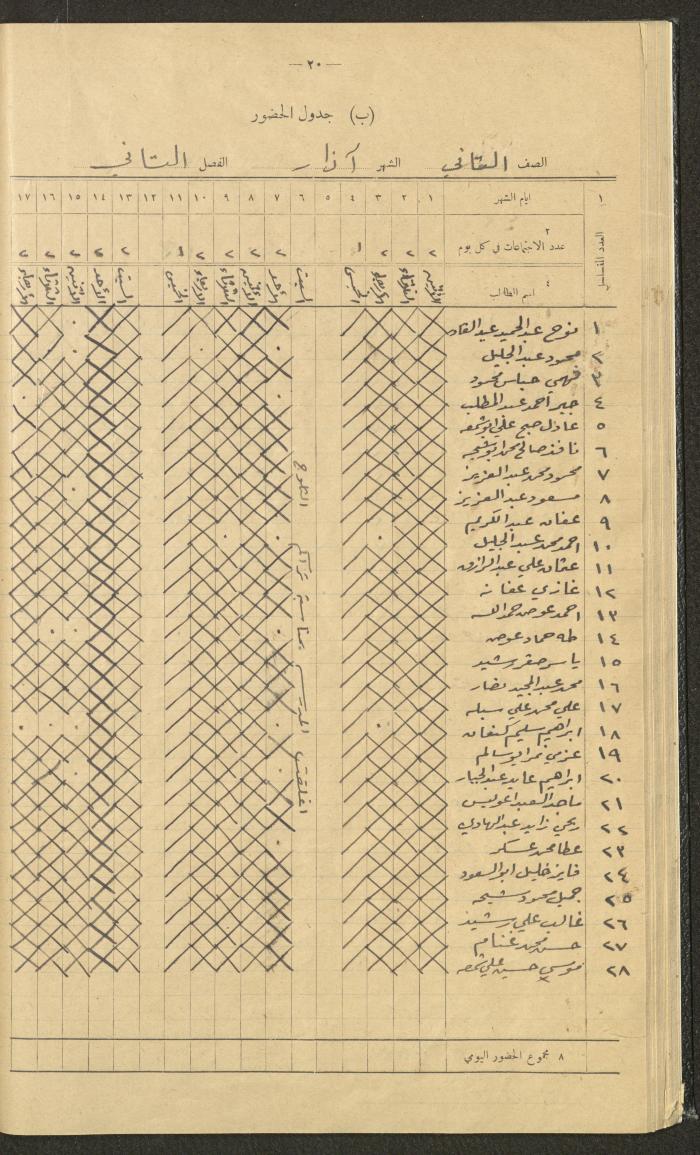 — ٢٠ —
(ب) جدول الحضور
الصف الثاني الشهر آذار الفصل الثاني
١ ايام الشهر ١ ٢ ٣ ٤ ٥ ٦ ٧ ٨ ٩ ١٠ ١١ ١٢ ١٣ ١٤ ١٥ ١٦ ١٧
العدد المتسلسل
٢ عدد الاجتماعات في كل يوم ٢ ٢ ٢ ١ ٢ ٢ ٢ ٢ ١ ٢ ٢ ٢ ٢ ٢
٤ اسم الطالب الاثنين الثلاثاء الاربعاء الخميس السبت الأحد الاثنين الثلاثاء الاربعاء الخميس السبت الأحد الاثنين الثلاثاء الاربعاء
١ نوح عبد الحميد عبد القادر
٢ محمود عبد الجليل
٣ فهمي عباس محمود
٤ جبر احمد عبد المطلب
٥ عادل صبح علي
٦ نافذ صالح
٧ محمود محمد عبد العزيز
٨ مسعود عبد العزيز
٩ عفان عبد الكريم
١٠ احمد محمد عبد الجليل
١١ عثمان علي عبد الرازق
١٢ غازي عفانه
١٣ احمد عوض حمد الله
١٤ طه حماد عوض
١٥ ياسر صقر رشيد
١٦ محمد عبد المجيد نصار
١٧ علي محمد علي
١٨ ابراهيم سليم كنعان
١٩ عزمي نمر ابو سالم
٢٠ ابراهيم عايد عبد الجبار
٢١ ماجد السعيد
٢٢ ربحي زايد عبد الهادي
٢٣ عطا محمد عسكر
٢٤ فايز خليل ابو السعود
٢٥ جميل محمود شيحه
٢٦ غالب علي رشيد
٢٧ حسن محمد غنام
٢٨ موسى حسين علي
اغلقت المدرسة بمناسبة تراكم الثلوج
٨ مجموع الحضور اليومي